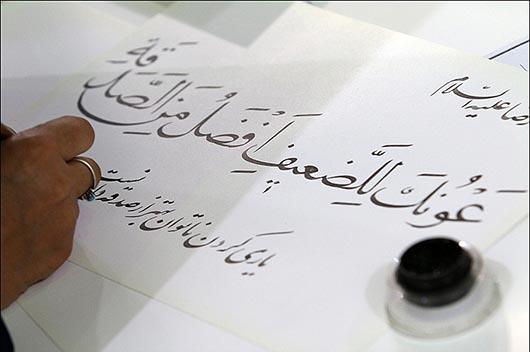 رضا علیه السلام
عَوْنُكَ لِلضَّعیفِ أَفْضَلُ مِنَ الصَّدَقَةِ
یاری کردن ناتوان بهتر از صدقه دادنست